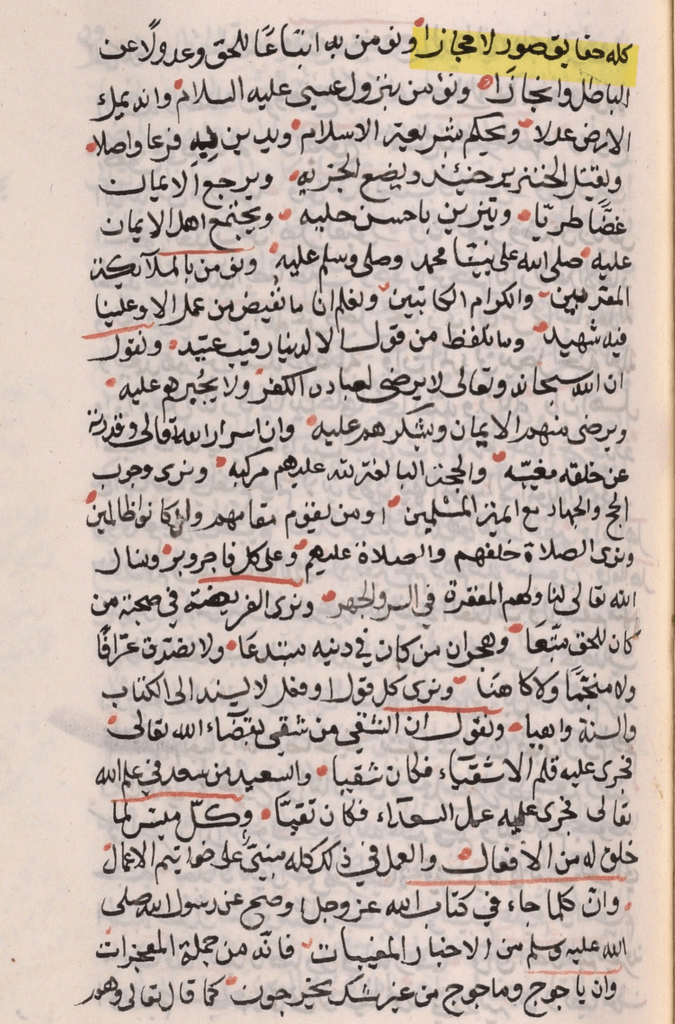 كله حقايق صور لا مجازا ونؤمن به اتباعا للحق وعدولا عن
الباطل وانجازا ونؤمن بنزول عيسى عليه السلام وانه يملك
الارض عدلا ويحكم بشريعة الاسلام ويدين فيه فرعا واصلا
ويقتل الخنزير حينئذ ويضع الجزيه ويرجع الايمان
غضا طريا ويتزين باحسن حليه ويجتمع اهل الايمان
عليه صلى الله على نبينا محمد وصلى وسلم عليه ونؤمن بالملآئكة
المقربين والكرام الكاتبين ونعلم ان ما نفيض من عمل الا وعلينا
فيه شهيد وما نلفظ من قول الا لدينا رقيب عتيد ونقول
ان الله سبحانه وتعالى لا يرضى لعباده الكفر ولا يجبرهم عليه
ويرضى منهم الايمان ويشكرهم عليه وان اسرار الله تعالى وقدرته
عن خلقه مغيبه والحجة البالغة لله عليهم مركبه ونرى وجوب
الحج والجهاد مع امير المسلمين او من يقوم مقامهم وان كانوا ظالمين
ونرى الصلاة خلفهم والصلاة عليهم وعلى كل فاجر وبر ونسال
الله تعالى لنا ولهم المغفرة في السر والجهر ونرى الفريضة في صحبة من
كان للحق متبعا وهجران من كان في دنيه مبتدعا ولا نصدق عرافا
ولا منجما ولا كاهنا ونرى كل قول او فعل لا يسند الى الكتاب
والسنة واهيا ونقول ان الشقي من شقي بقضآء الله تعالى
فجرى عليه قلم الاشقيآء فكان شقيا والسعيد من سعد في علم الله
تعالى فجرى عليه عمل السعدآء فكان تقيا وكل ميسر لما
خلق له من الافعال والعمل في ذلك كله مبني على خواتيم الاعمال
وان كلما جاء في كتاب الله عز وجل وصح عن رسول الله صلى
الله عليه وسلم من الاخبار المغيبات فانه من جملة المعجزات
وان ياجوج وماجوج من غير شك يخرجون كما قال تعالى وهم